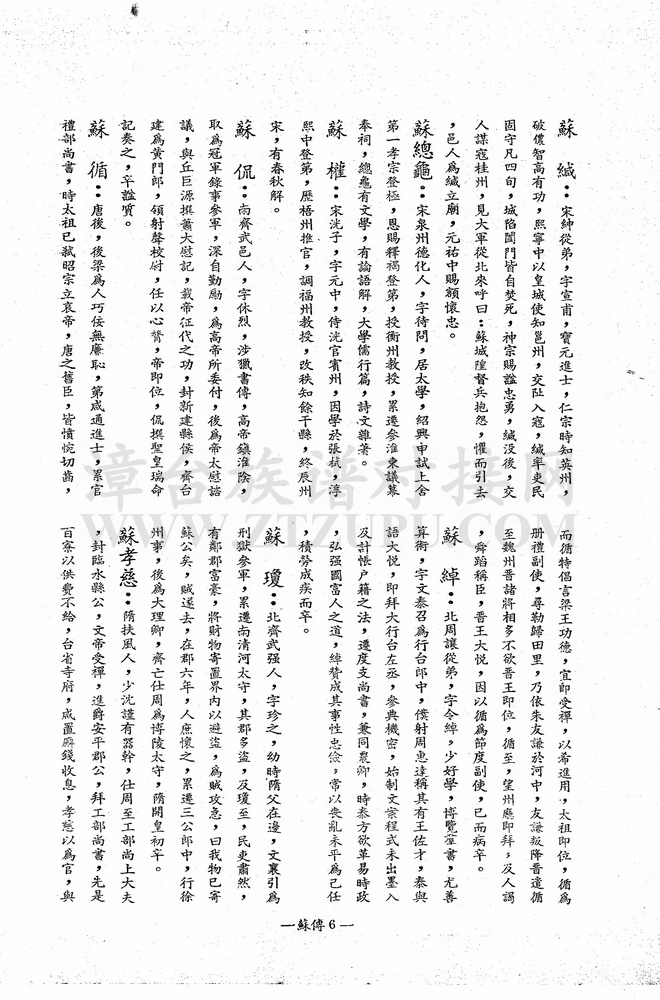 蘇 緘：宋紳從弟，字宣甫，寶元進士，仁宗時知英州，
破儂智高有功，熙寧中以皇城使知邕州，交阯入寇，緘率吏民
固守凡四旬，城陷闔門皆自焚死，神宗賜謚忠勇，緘没後，交
人謀寇桂州，見大軍從北來呼曰：蘇城隍督兵抱怨，懼而引去
，邑人為緘立廟，元祐中賜額懷忠。
蘇總龜：宋泉州德化人，字待問，居太學，紹興中試上舍
第一孝宗登極，恩賜釋褐登第，授衡州教授，累遷參淮東議幕
奉祠，總龜有文學，有論語解，大學儒行篇，詩文雜著。
蘇 權：宋洸子，字元中，侍洸官賓州，因學於張栻，淳
熙中登第，歷梧州推官，調福州教授，改秩知餘干縣，終辰州
宋，有春秋解。
蘇 侃：南齊武邑人，字休烈，涉獵書傳，高帝鎮淮陰，
取為冠軍錄事參軍，深自勤勵，為高帝所委付，後為帝太慰諮
議，與丘巨源撰蕭大慰記，載帝征代之功，封新建縣侯，齊台
建為黃門郎，領射聲校尉，任以心膂，帝即位，侃撰聖皇瑞命
記奏之，卒謚質。
蘇 循：唐後，後梁為人巧佞無廉恥，第咸通進士，累官
禮部尚書，時太祖已弒昭宗立哀帝，唐之舊臣，皆憤惋切齒，
而循特倡言梁王功德，宜即受禪，以希進用，太祖即位，循為
册禮副使，尋勒歸田里，乃依朱友謙於河中，友謙叛降晉遣循
至魏州晉諸將相多不欲晉王即位，循至，望州廨即拜，及入謁
，舞蹈稱臣，晉王大悦，因以循為節度副使，已而病卒。
蘇 綽：北周讓從弟，字令綽，少好學，博覽羣書，尤善
算術，字文泰召為行台郎中，僕射周惠達稱其有王佐才，泰與
語大悦，即拜大行台左丞，參典機密，始制文案程式未出墨入
及計帳户籍之法，遷度支尚書，兼同農卿，時泰方欲革易時政
，弘强國富人之道，綽贊成其事性忠儉，常以喪亂未平為己任
，積勞成疾而卒。
蘇 瓊：北齊武强人，字珍之，幼時隋父在邊，文襄引為
刑獄參軍，累遷南清河太守，其郡多盜，及瓊至，民吏肅然，
有鄰郡富豪，將財物寄置界内以避盜，為賊攻急，曰我物已寄
蘇公矣，賊遂去，在郡六年，人庶懷之，累遷三公郎中，行徐
州事，後為大理卿，齊亡仕周為博陵太守，隋開皇初卒。
蘇孝慈：隋扶風人，少沈謹有器幹，仕周至工部尚上大夫
，封臨水縣公，文帝受禪，進爵安平郡公，拜工部尚書，先是
百寮以供費不給，台省寺府，咸置廨錢收息，孝慈以為官，與
—蘇傳6—
章台族譜对接网
WWW.ZTZUPU.COM